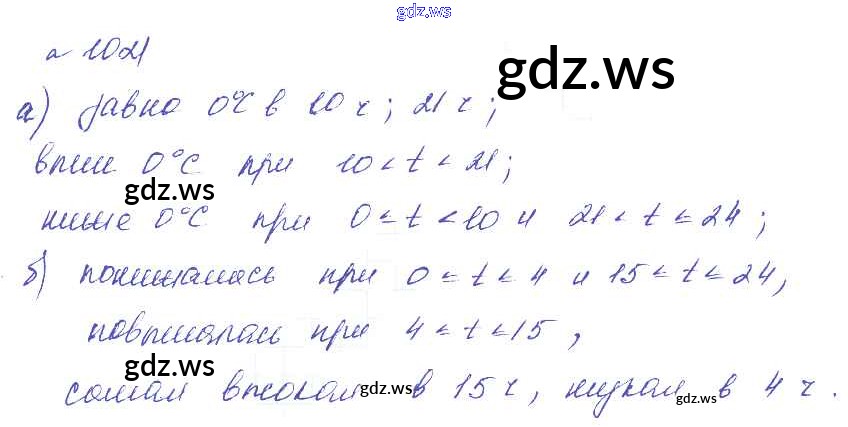 gdz.ws
№ 1021
gdz.ws
а) равно 0°C в 10 ч; 21 ч;
выше 0°C при 10 < t < 21;
gdz.ws
ниже 0°C при 0 ≤ t < 10 и 21 < t ≤ 24;
б) понижалась при 0 ≤ t ≤ 4 и 15 ≤ t ≤ 24,
повышалась при 4 ≤ t ≤ 15,
gdz.ws
самая высокая в 15 ч, низкая в 4 ч.
gdz.ws
gdz.ws